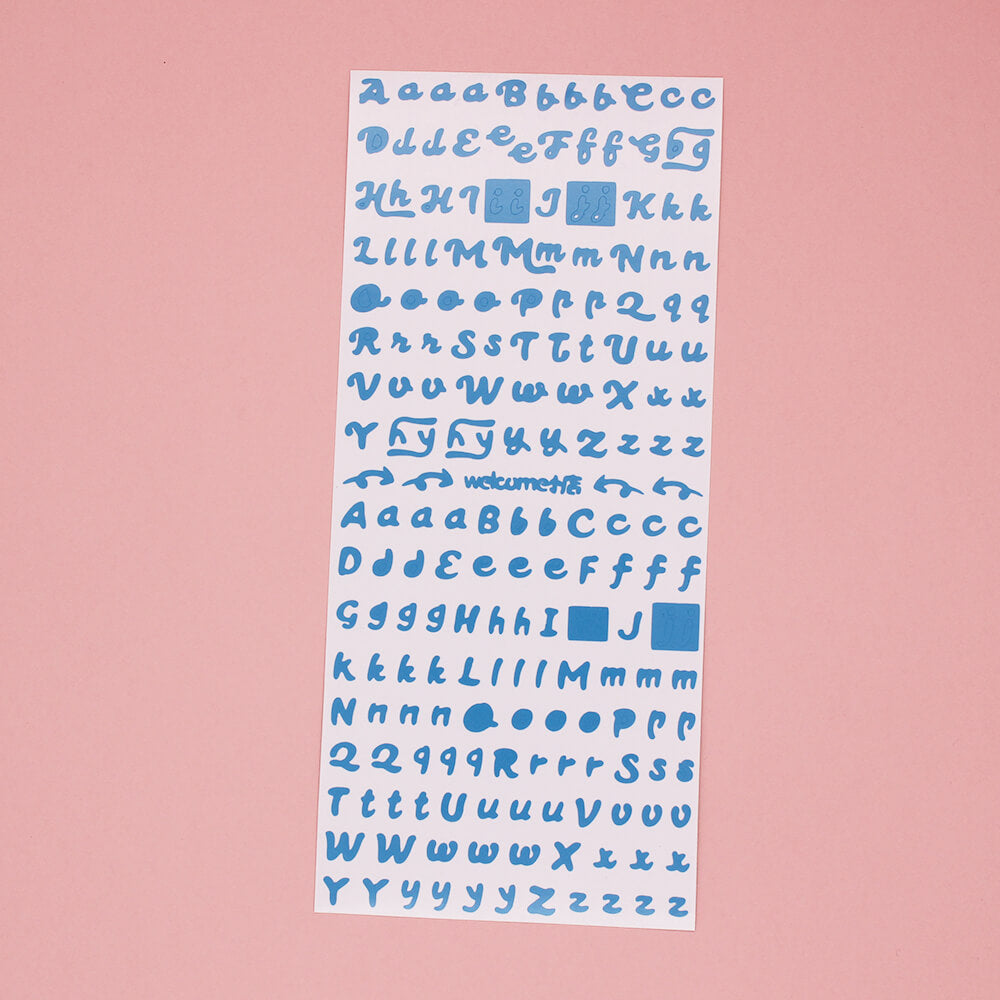 A a a a B b b b C c c
D d d E e e F f f G g g
H h H I i i J j j K k k
L l l l M M m m N n n
O o o o P p p Q q q
R r r S s T T t U u u
V v v W w w X x x
Y h y h y y y Z z z z
welcome十店
A a a a B b b C c c c
D d d E e e e F f f f
G g g g H h h I J j j
k k k k L l l l M m m m
N n n n O o o o P p p
Q Q q q q R r r r S s s
T t t t U u u u V v v v
W W w w w w X x x x
Y Y y y y y Z z z z z